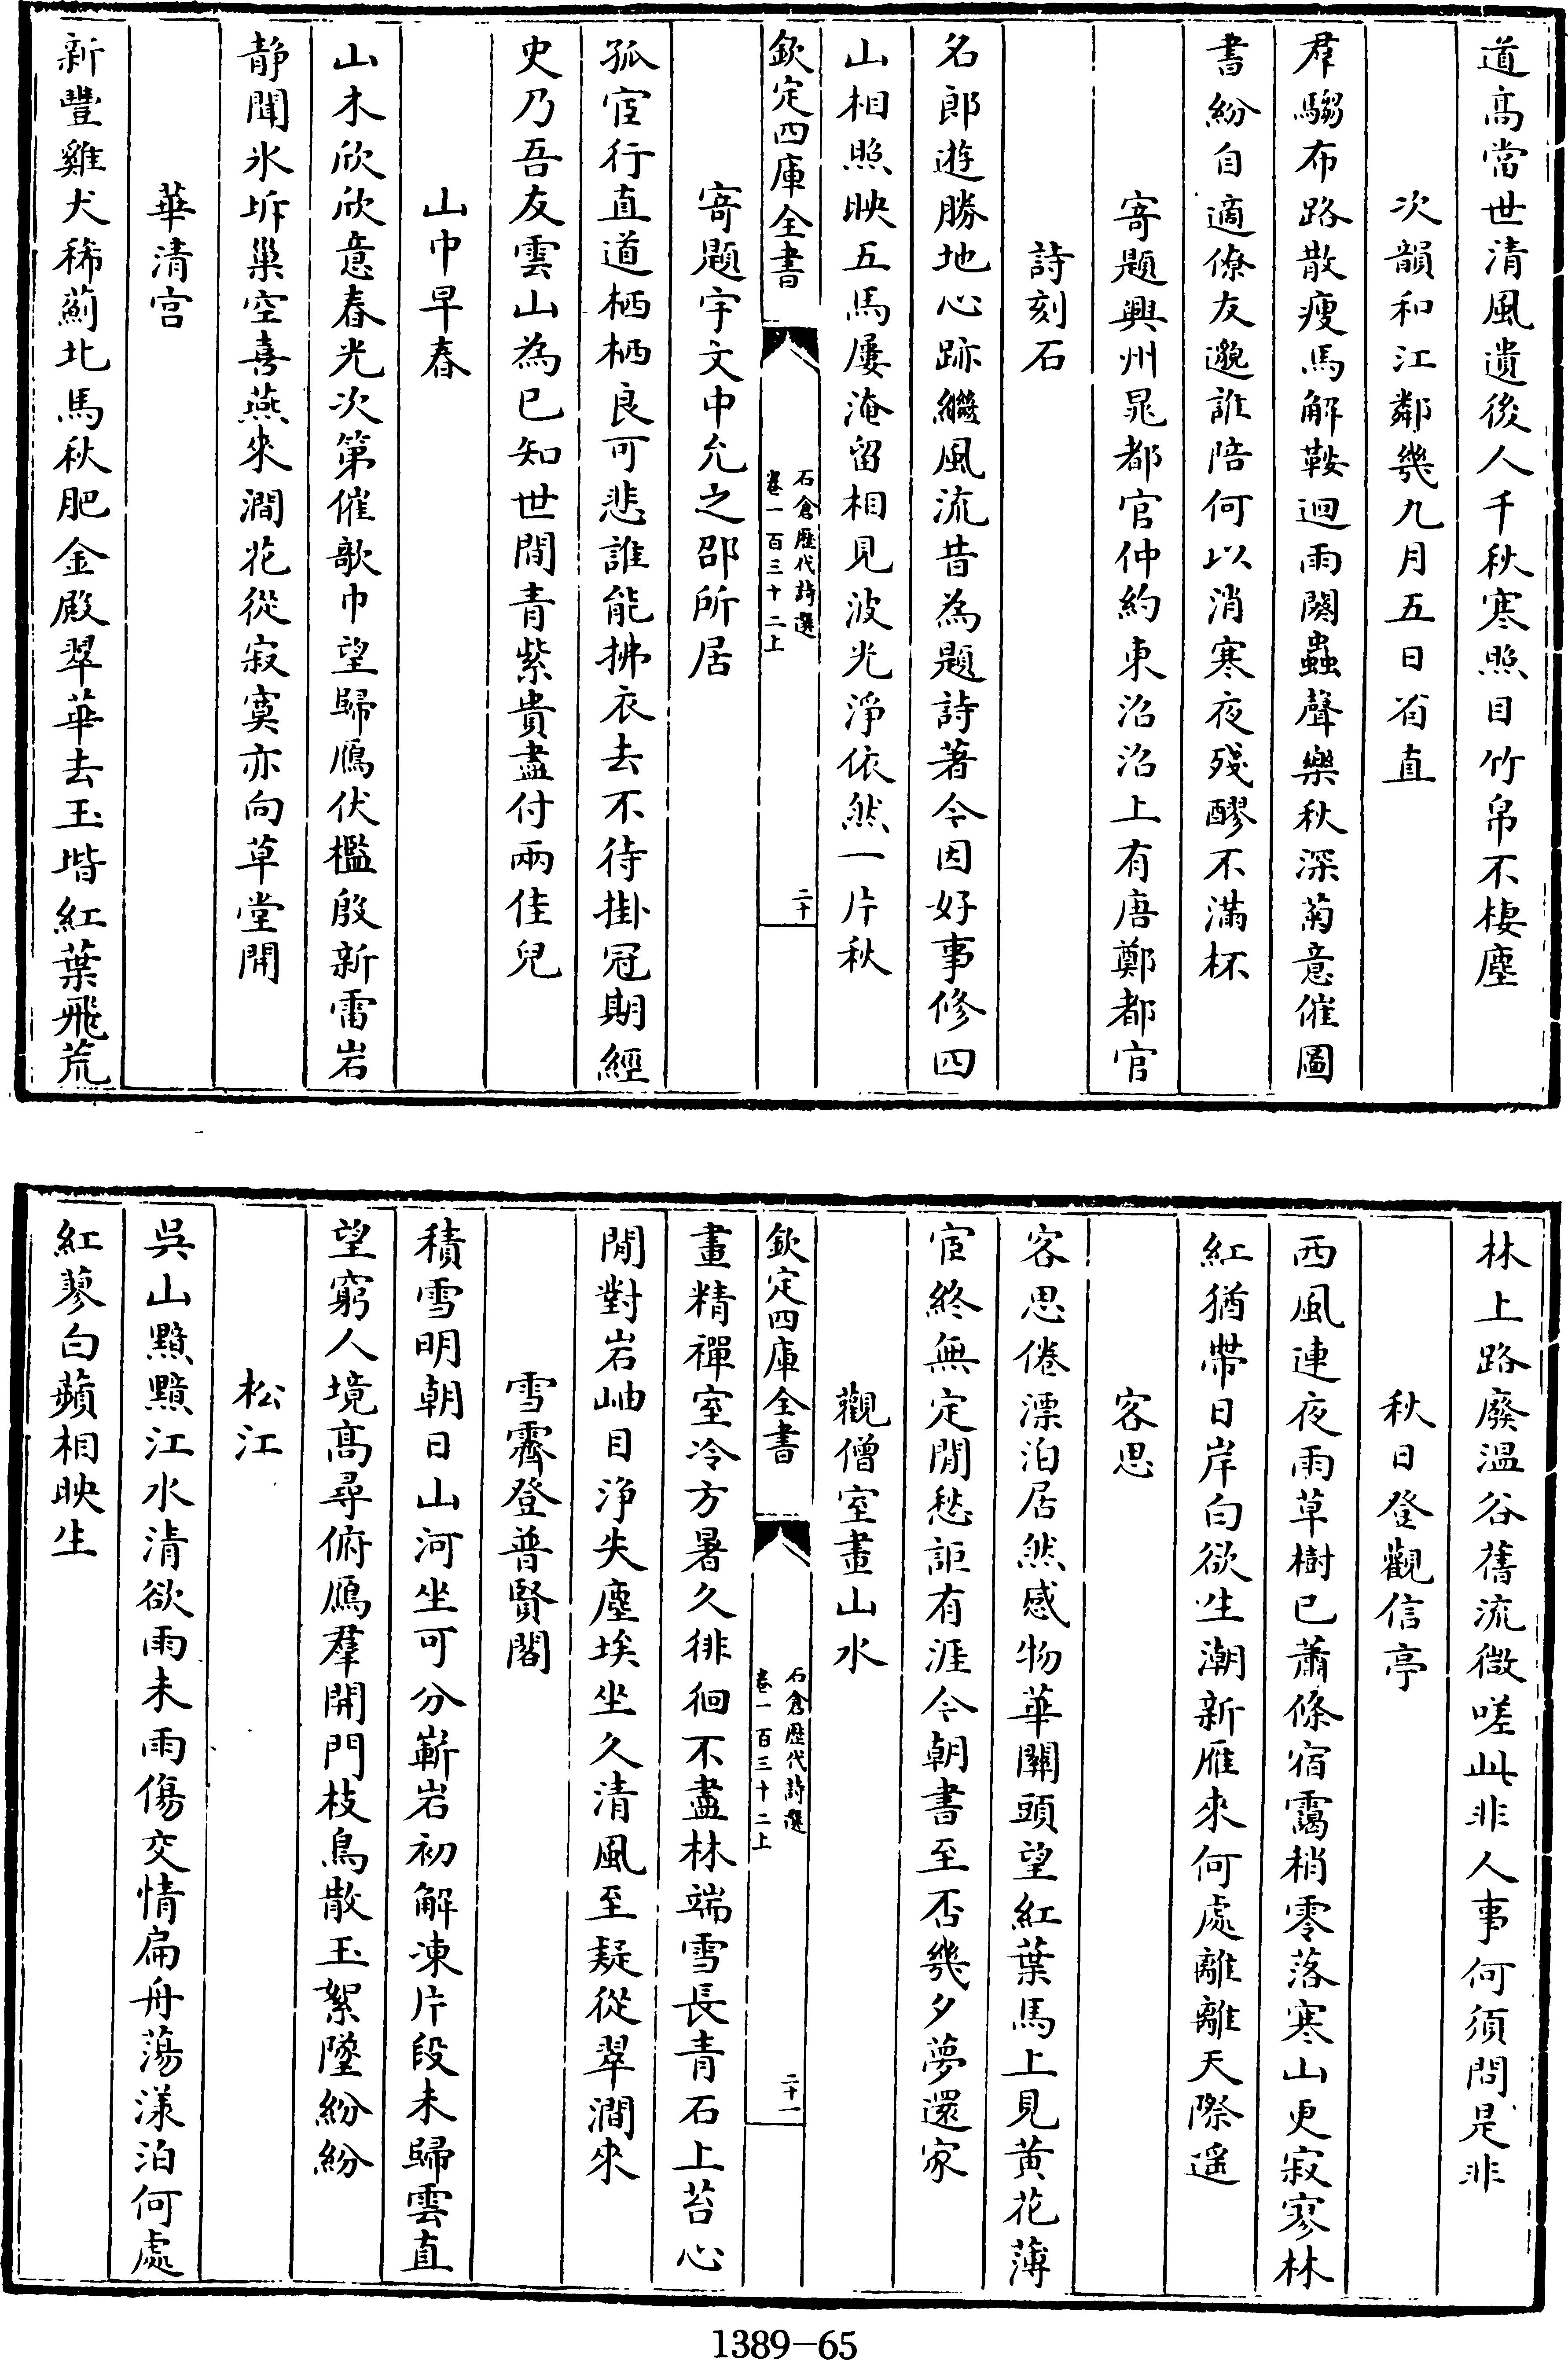 道髙當世清風遺後人千秋寒照目竹帛不棲塵
次韻和江鄰幾九月五日省直
羣騶布路散瘦馬解鞍迴雨闋蟲聲樂秋深菊意催圖
書紛自適僚友邈誰陪何以消寒夜殘醪不滿杯
寄題興州晁都官仲約東沼沼上有唐鄭都官
詩刻石
名郎遊勝地心跡繼風流昔為題詩著今因好事修四
山相照映五馬屢淹留相見波光淨依然一片秋
欽定四庫全書
石倉歴代詩選
卷一百三十二上
二十
寄題宇文中允之邵所居
孤宦行直道栖栖良可悲誰能拂衣去不待掛冠期經
史乃吾友雲山為已知世間青紫貴盡付兩佳兒
山中早春
山木欣欣意春光次第催歌巾望歸鴈伏檻殷新雷岩
静聞氷坼巢空喜燕來澗花從寂寞亦向草堂開
華清宫
新豐雞犬稀薊北馬秋肥金殿翠華去玉堦紅葉飛荒
林上路廢温谷舊流微嗟此非人事何須問是非
秋日登觀信亭
西風連夜雨草樹已蕭條宿靄梢零落寒山更寂寥林
紅猶帶日岸白欲生潮新雁來何處離離天際遥
客思
客思倦漂泊居然感物華關頭望紅葉馬上見黄花薄
宦終無定閒愁詎有涯今朝書至否幾夕夢還家
觀僧室畫山水
欽定四庫全書
石倉歴代詩選
卷一百三十二上
二十一
畫精禪室冷方暑久徘徊不盡林端雪長青石上苔心
閒對岩岫目淨失塵埃坐久清風至疑從翠澗來
雪霽登普賢閣
積雪明朝日山河坐可分嶄岩初解凍片段未歸雲直
望窮人境髙尋俯鴈羣開門枝鳥散玉絮墜紛紛
松江
吳山黯黯江水清欲雨未雨傷交情扁舟蕩漾泊何處
紅蓼白蘋相映生
1389-65